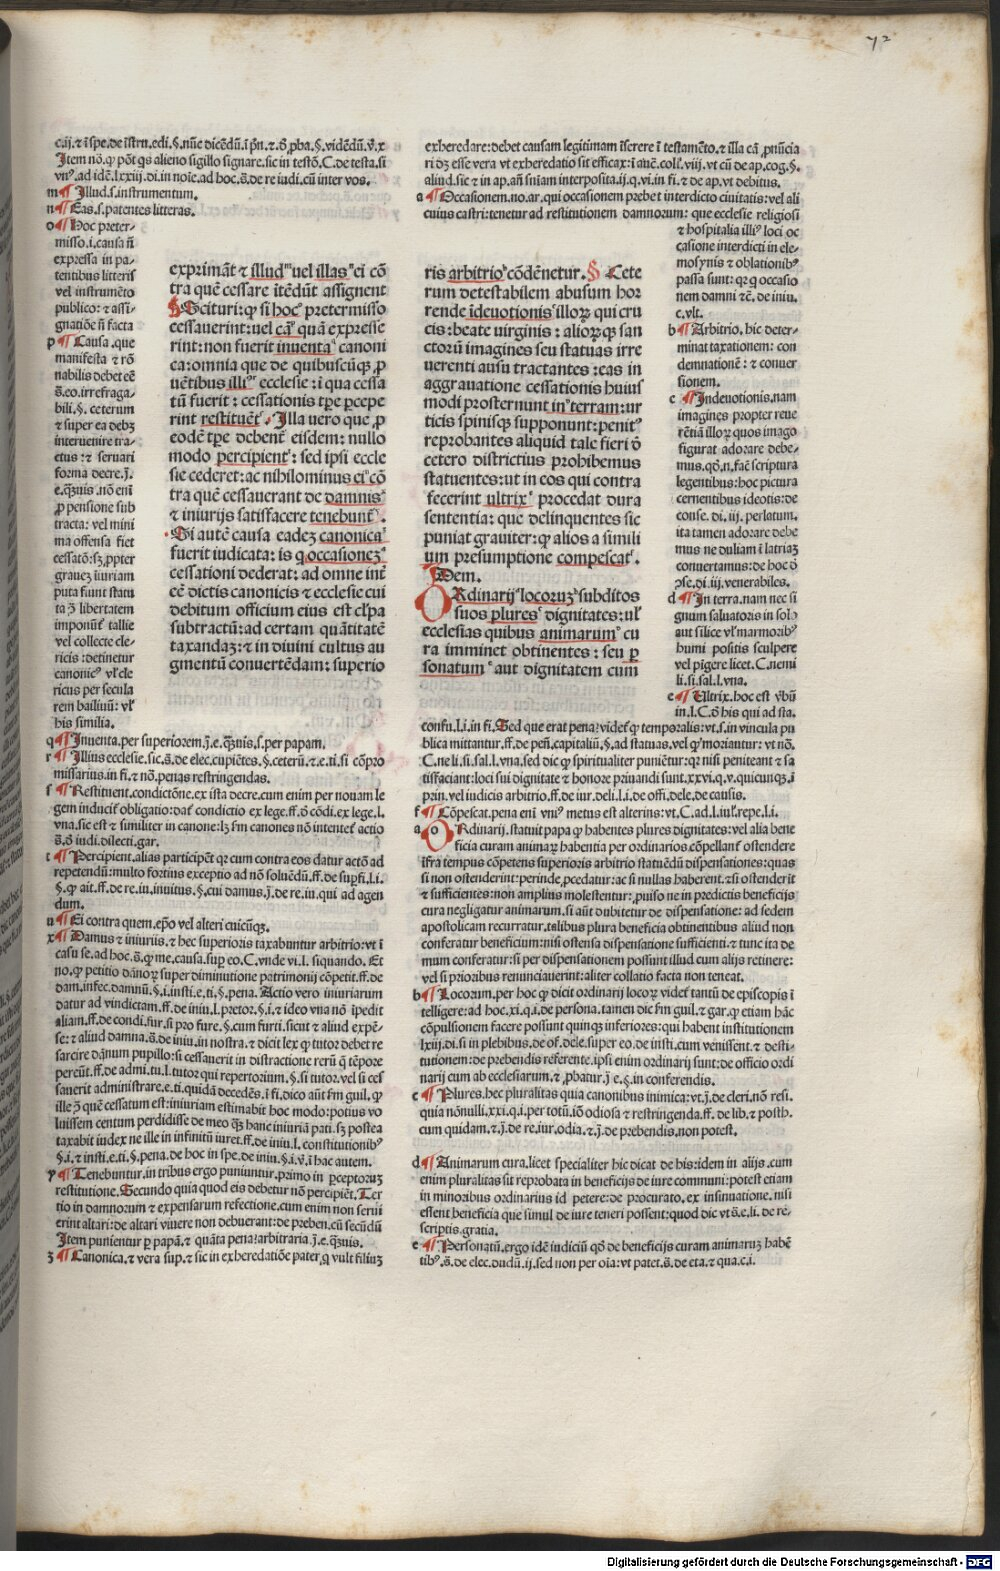 72
c.ij.⁊ ĩ spe.de ĩstrn.edi.§.nũc dicẽdũ.ĩ pñ.⁊.ð pba.§.vidẽdũ.ṽ.x
Jtem nõ.ꝙ põt q̃s alieno sigillo signare.sic in testõ.C.de testa.si
vnꝰ.ad idẽ.lxxiij.di.in noĩe.ad hoc.s̄.de re iudi.cũ inter vos.
m ¶ Jllud.s.instrumentum.
n ¶ Eas.s.patentes litteras.
o ¶ Hoc preter-
misso.i.causa ñ
expressa in pa-
tentibus litteris
vel instrumẽto
publico: ⁊ assi-
gnatiõe ñ facta
p ¶ Causa.que
manifesta ⁊ rõ
nabilis debet eẽ
s̄.eo.irrefraga-
bili.§. ceterum
⁊ super ea debꝫ
interuenire tra-
ctus: ⁊ seruari
forma decre.j̄.
e.q̃uis.nõ enĩ
ꝓ pensione sub
tracta: vel mini
ma offensa fiet
cessatõ:sꝫ ꝓpter
grauez iiuriam
puta fiunt statu
ta ꝯ̃ libertatem
imponũt̃ tallie
vel collecte cle-
ricis :detinetur
canonicꝰ vl̃ cle
ricus per secula
rem bailiuũ: vl̃
his similia.
exprimãt ⁊ illud uel illas ei cõ
tra quẽ cessare ĩtẽdũt assignent
§ Scituri:ꝙ si hoc pretermisso
cessauerint:uel cã quã expresse
rint:non fuerit inuenta canoni
ca:omnia que de quibuscũqꝫ ꝓ
uẽtibus illiꝰ ecclesie: ĩ qua cessa
tũ fuerit: cessationis tꝑe ꝑcepe
rint restituẽt. Jlla vero que ꝓ
eodẽ tꝑe debent eisdem: nullo
modo percipient: sed ipsi eccle
sie cederet:ac nihilominus ei cõ
tra quẽ cessauerant de damnis
⁊ iniurijs satisfacere tenebunt̃.
Si autẽ causa eadeꝫ canonica
fuerit iudicata: is q̇ occasionez
cessationi dederat: ad omne int̃
eẽ dictis canonicis ⁊ ecclesie cui
debitum officium eius est cĺpa
subtractũ:ad certam quãtitatẽ
taxandaꝫ: ⁊ in diuini cultus au
gmentũ conuertẽdam: superio
q ¶ Jnuenta.per superiorem.j̄.e.q̃uis.s.per papam.
r ¶ Jllius ecclesie.sic.s̄.de elec.cupiẽtes.§.ceterũ.⁊ e.ti.si cõpro
missarius.in fi.⁊ nõ.penas restringendas.
s ¶ Restituent.condictõne.ex ista decre.cum enim per nouam le
gem inducit̃ obligatio:dat̃ condictio ex lege.ff.ð cõdi.ex lege.l.
vna.sic est ⁊ similiter in canone:lꝫ fm canones nõ intentet̃ actio
s̄.ð iudi.dilecti.gar.
t ¶ Percipient.alias participẽt qꝛ cum contra eos datur actõ ad
repetendũ:multo fortius exceptio ad nõ soluẽdũ.ff.de sup̃fi.l.i.
§.ꝙ ait.ff.de re.iu.inuitus.§.cui damus.j̄.de re.iu.qui ad agen
dum.
u ¶ Ei contra quem.ep̃o vel alteri cuicũqꝫ.
x ¶ Damus ⁊ iniuriis.⁊ hec superioris taxabuntur arbitrio:vt ĩ
casu se.ad hoc.s̄.ꝙ me.causa.sup̃ eo.C.vnde vi.l. siquando. Et
no.ꝙ petitio dãnoꝝ super diminutione patrimonij cõpetit.ff.de
dam.infec.damnũ.§.i.insti.e.ti.§.pena. Actio vero iniuriarum
datur ad vindictam.ff.de iniu.l.pretor.§.i.⁊ ideo vna nõ ĩpedit
aliam.ff.de condi.fur.si pro fure.§.cum furti.sicut ⁊ aliud expẽ-
se: ⁊ aliud damna.s̄.de iniu.in nostra.⁊ dicit lex ꝙ tutor debet re
sarcire dãnum pupillo:si cessauerit in distractione rerũ q̃ tẽpore
pereũt.ff.de admi.tu.l.tutor qui repertorium.§.si tutor.vel si ces
sauerit administrare.e.ti.quidã decedẽs.ĩ fi.dico aũt fm guil. ꝙ
ille ꝯ̃ quẽ cessatum est:iniuriam estimabit hoc modo:potius vo
luissem centum perdidisse de meo q̃ꝫ hanc iniuriã pati.sꝫ postea
taxabit iudex ne ille in infinitũ iuret.ff.de iniu.l. constitutionibꝰ
§.i.⁊ insti.e.ti.§.pena.de hoc in spe.de iniu.§.i.ṽ.ĩ hac autem.
y ¶ Tenebuntur.in tribus ergo puniuntur.primo in perceptoꝝ
restitutione. Secundo quia quod eis debetur nõ percipiẽt. Ter
tio in damnorum ⁊ expensarum refectione.cum enim non serui
erint altari:de altari viuere non debuerant:de preben.cũ secũdũ
Jtem punientur ꝑ papã.⁊ quãta pena:arbitraria.j̄.e.q̃uis.
3 ¶ Canonica.⁊ vera sup̃.⁊ sic in exheredatiõe pater.q̇ vult filiuꝫ
exheredare:debet causam legitimam ĩserere ĩ testamẽto.⁊ illa cã ꝓnũcia
ri dꝫ esse vera vt exheredatio sit efficax:ĩ auẽ.col.viij.vt cũ de ap.cog.§.
aliud.sic ⁊ in ap.an sñiam interposita.ij.q.vi.in fi.⁊ de ap.vt debitus.
a ¶ Occasionem.no.ar.qui occasionem prebet interdicto ciuitatis:vel ali
cuius castri:tenetur ad restitutionem damnorum: que ecclesie religiosi
⁊ hospitalia illiꝰ loci oc
casione interdicti in ele-
mosynis ⁊ oblationibꝰ
passa sunt: qꝛ q̇ occasio
nem damni ⁊c̃.de iniu.
c.vlt.
b ¶ Arbitrio.hic deter-
minat taxationem: con
demnationẽ: ⁊ conuer
sionem.
c ¶ Jndeuotionis.nam
imagines propter reue
rẽtiã illoꝝ quos imago
figurat adorare debe-
mus.qð.n.facĩ scriptura
legentibus:hoc pictura
cernentibus ideotis:de
conse. di. iij. perlatum.
ita tamen adorare debe
mus ne duliam ĩ latriaꝫ
conuertamus:de hoc ð
ꝯse.di.iij.venerabiles.
d ¶ Jn terra.nam nec si
gnum saluatoris in solo
aut silice vl̃ marmoribꝰ
humi positis sculpere
vel pigere licet.C.nemi
li.si.sal.l.vna.
e ¶ Ultrix.hoc est ṽbũ
in.l.C.ð his qui ad sta.
ris arbitrio cõdẽnetur. § Cete
rum detestabilem abusum hor
rende ĩdeuotionis illoꝝ qui cru
cis:beate virginis : alioꝝqꝫ san
ctorũ imagines seu statuas irre
uerenti ausu tractantes :eas in
aggrauatione cessationis huius
modi prosternunt in terram:ur
ticis spinisqꝫ supponunt:penitꝰ
reprobantes aliquid tale fieri ð
cetero districtius prohibemus
statuentes:ut in eos qui contra
fecerint ultrix procedat dura
sententia: que delinquentes sic
puniat grauiter:ꝙ alios a simili
um presumptione compescat.
Jdem.
ORdinarij locoruꝫ subditos
suos plures dignitates:ul̃
ecclesias quibus animarum cu
ra imminet obtinentes : seu ꝑ
sonatum aut dignitatem cum
confu.l.i.in fi. Sed que erat pena? videt̃ ꝙ temporalis:vt.s.in vincula pu
blica mittantur.ff.de peñ.capitaliũ.§.ad statuas.vel ꝙ moriantur: vt nõ.
C.ne li.si.sal.l.vna.sed dic ꝙ spiritualiter puniẽtur:qꝛ nisi peniteant ⁊ sa
tisfaciant:loci sui dignitate ⁊ honore priuandi sunt.xxvi.q.v.quicunqꝫ.ĩ
prin.vel iudicis arbitrio.ff.de iur.deli.l.i.de offi.dele.de causis.
f ¶ Cõpescat.pena enĩ vniꝰ metus est alterius:vt.C.ad.l.iul̃.repe.l.i.
a ORdinarij.statuit papa ꝙ habentes plures dignitates:vel alia bene
ficia curam animaꝝ habentia per ordinarios cõpellant̃ ostendere
ĩfra tempus cõpetens superioris arbitrio statuẽdũ dispensationes:quas
si non ostenderint:perinde ꝓcedatur:ac si nullas haberent.⁊ si ostenderit
⁊ sufficientes:non amplius molestentur:puiso ne in predictis beneficijs
cura negligatur animarum.si aũt dubitetur de dispensatione: ad sedem
apostolicam recurratur.talibus plura beneficia obtinentibus aliud non
conferatur beneficium:nisi ostensa dispensatione sufficienti.⁊ tunc ita de
mum conferatur:si per dispensationem possunt illud cum alijs retinere:
vel si prioribus renunciauerint:aliter collatio facta non teneat.
b ¶ Locorum.per hoc ꝙ dicit ordinarij locoꝝ videt̃ tantũ de episcopis ĩ
telligere:ad hoc.xi.q.i.de persona.tamen dic fm guil.⁊ gar.ꝙ etiam hãc
cõpulsionem facere possunt quinqꝫ inferiores:qui habent institutionem
lxiij.di.si in plebibus.de of.dele.super eo.de insti.cum venissent.⁊ desti-
tutionem:de prebendis referente.ipsi enim ordinarij sunt:de officio ordi
narij cum ab ecclesiarum.⁊ ꝓbatur.j̄ e.§.in conferendis.
c ¶ Plures.hec pluralitas quia canonibus inimica:vt.j̄.de cleri.nõ resi.
quia nõnulli.xxi.q.i.per totũ.iõ odiosa ⁊ restringenda.ff.de lib.⁊ posth.
cum quidam.⁊.j̄.de re.iur.odia.⁊.j̄.de prebendis.non potest.
d ¶ Animarum cura.licet specialiter hic dicat de his:idem in alijs.cum
enim pluralitas sit reprobata in beneficijs de iure communi:potest etiam
in minoribus ordinarius id petere:de procurato.ex insinuatione.nisi
essent beneficia que simul de iure teneri possent:quod dic vt s̄.e.li. de re.
scriptis.gratia.
e ¶ Personatũ.ergo idẽ iudiciũ qð de beneficijs curam animaruꝫ habẽ
tibꝰ.s̄.de elec.dudũ.ij.sed non per oĩa:vt patet.s̄.de eta.⁊ qua.c.i.
Digitalisierung gefördert durch die Deutsche Forschungsgemeinschaft - DFG